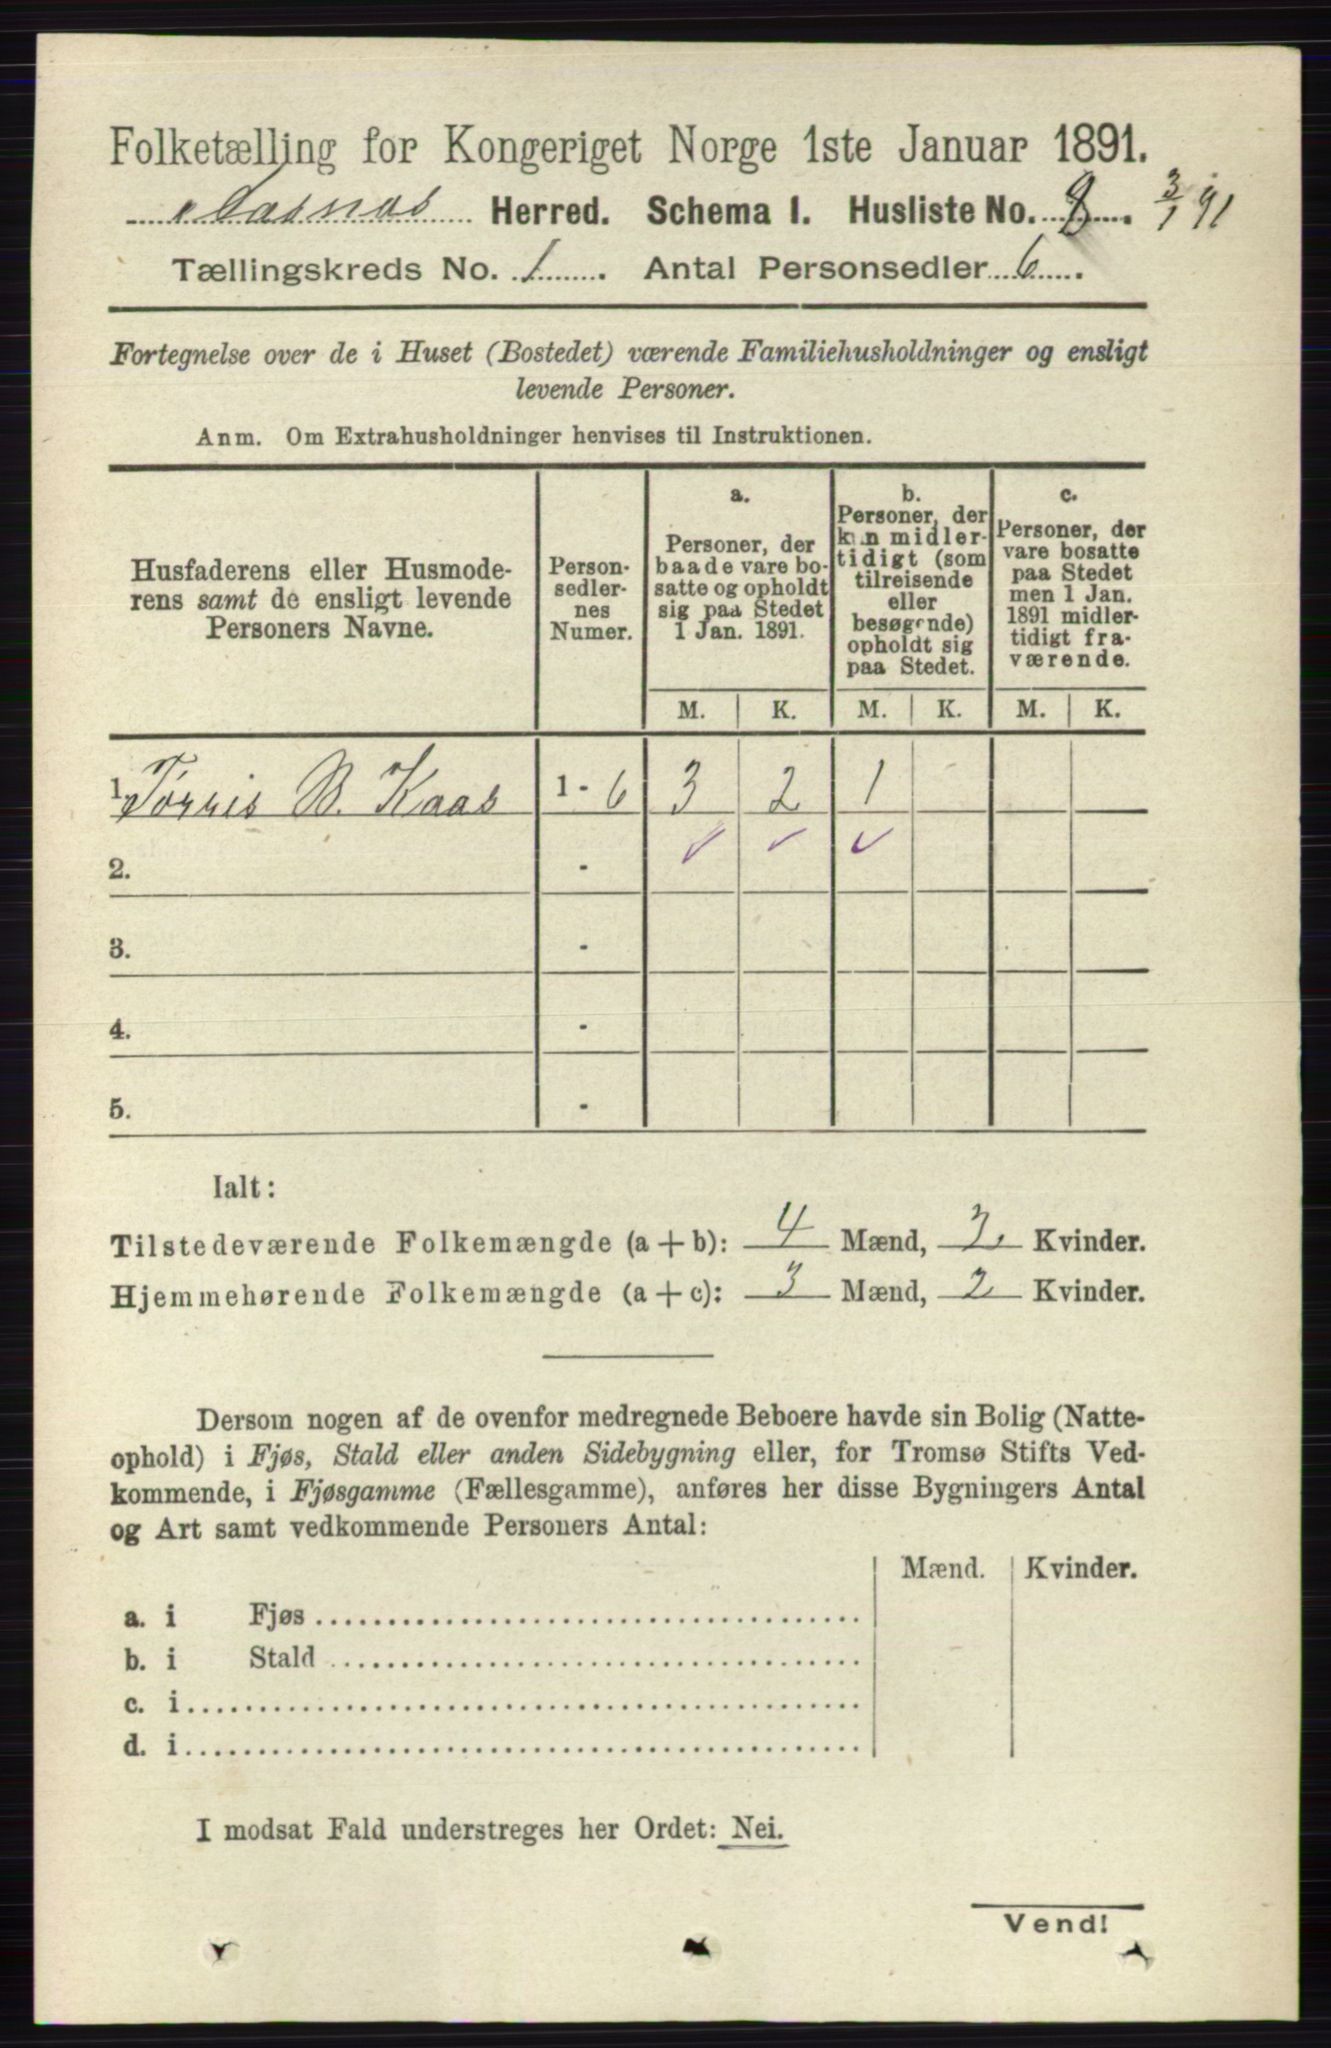 Folketælling for Kongeriget Norge 1ste Januar 1891.
Herred. Schema 1. Husliste No. 8. 3/1 91
Tællingskreds No. 1. Antal Personsedler 6.
Fortegnelse over de i Huset (Bostedet) værende Familiehusholdninger og ensligt
levende Personer.
Anm. Om Extrahusholdninger henvises til Instruktionen.
Husfaderens eller Husmode-
rens samt de ensligt levende
Personers Navne.
Person-
sedler-
nes
Numer.
a.
Personer, der
baade vare bo-
satte og opholdt
sig paa Stedet
1 Jan. 1891.
b.
Personer, der
kun midler-
tidigt (som
tilreisende
eller
besøgende)
opholdt sig
paa Stedet.
c.
Personer, der
vare bosatte
paa Stedet
men 1 Jan.
1891 midler-
tidigt fra-
værende.
M. K. M. K. M. K.
1. Törris B. Kaas 1 - 6 3 2 1
2. -
3. -
4. -
5. -
Ialt:
Tilstedeværende Folkemængde (a + b): 4 Mænd, 2 Kvinder.
Hjemmehørende Folkemængde (a + c): 3 Mænd, 2 Kvinder.
Dersom nogen af de ovenfor medregnede Beboere havde sin Bolig (Natte-
ophold) i Fjøs, Stald eller anden Sidebygning eller, for Tromsø Stifts Ved-
kommende, i Fjøsgamme (Fællesgamme), anføres her disse Bygningers Antal
og Art samt vedkommende Personers Antal:
Mænd. Kvinder.
a. i Fjøs
b. i Stald
c. i
d. i
I modsat Fald understreges her Ordet: Nei.
Vend!